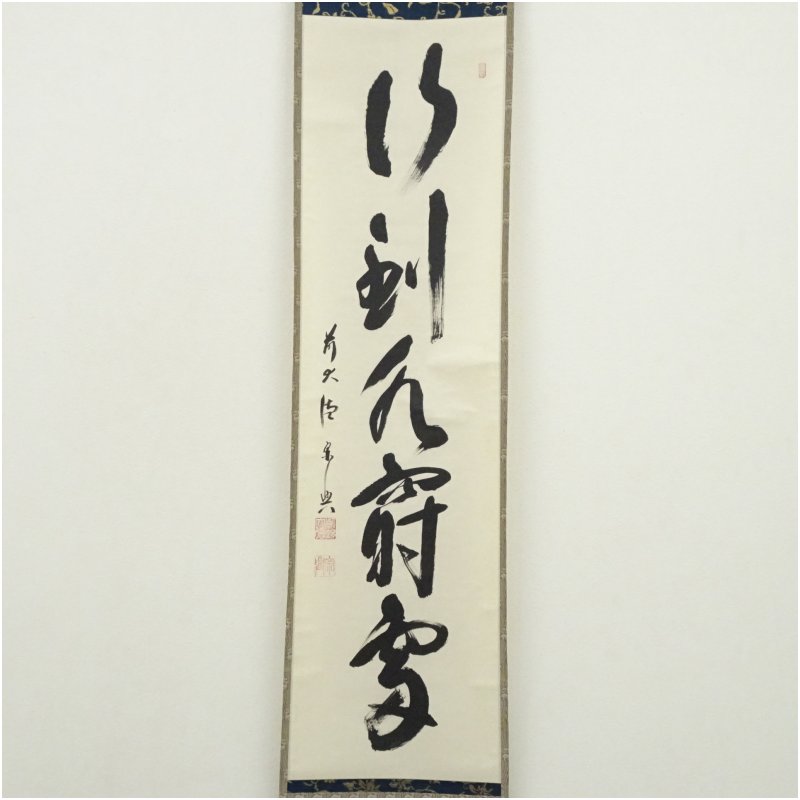 行到水窮處
前大德宗興